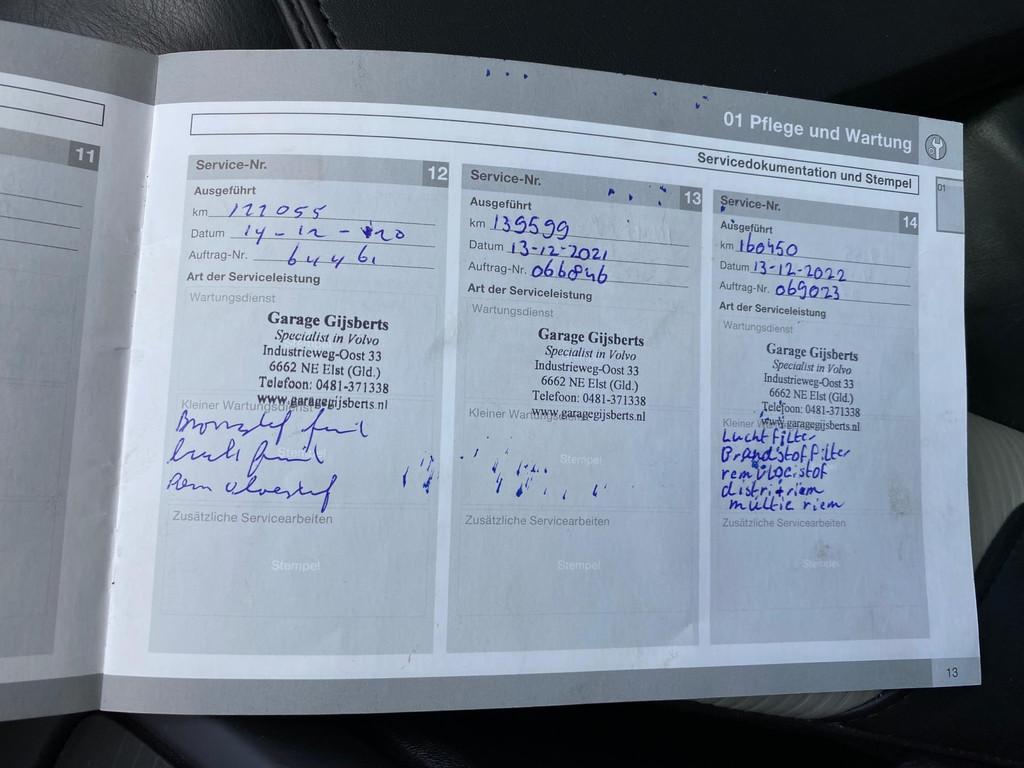 11
01 Pflege und Wartung
Servicedokumentation und Stempel
01
Service-Nr. 12
Ausgeführt
km 122055
Datum 14-12-20
Auftrag-Nr. 64461
Art der Serviceleistung
Wartungsdienst
Garage Gijsberts
Specialist in Volvo
Industrieweg-Oost 33
6662 NE Elst (Gld.)
Telefoon: 0481-371338
www.garagegijsberts.nl
Kleiner Wartungsdienst
Zusätzliche Servicearbeiten
Stempel
Service-Nr. 13
Ausgeführt
km 139599
Datum 13-12-2021
Auftrag-Nr. 066846
Art der Serviceleistung
Wartungsdienst
Garage Gijsberts
Specialist in Volvo
Industrieweg-Oost 33
6662 NE Elst (Gld.)
Telefoon: 0481-371338
www.garagegijsberts.nl
Kleiner Wartungsdienst
Stempel
Zusätzliche Servicearbeiten
Stempel
Service-Nr. 14
Ausgeführt
km 160450
Datum 13-12-2022
Auftrag-Nr. 069023
Art der Serviceleistung
Wartungsdienst
Garage Gijsberts
Specialist in Volvo
Industrieweg-Oost 33
6662 NE Elst (Gld.)
Telefoon: 0481-371338
www.garagegijsberts.nl
Kleiner
Luchtfilter
Brandstoffilter
remvloeistof
distri riem
multie riem
Zusätzliche Servicearbeiten
Stempel
13